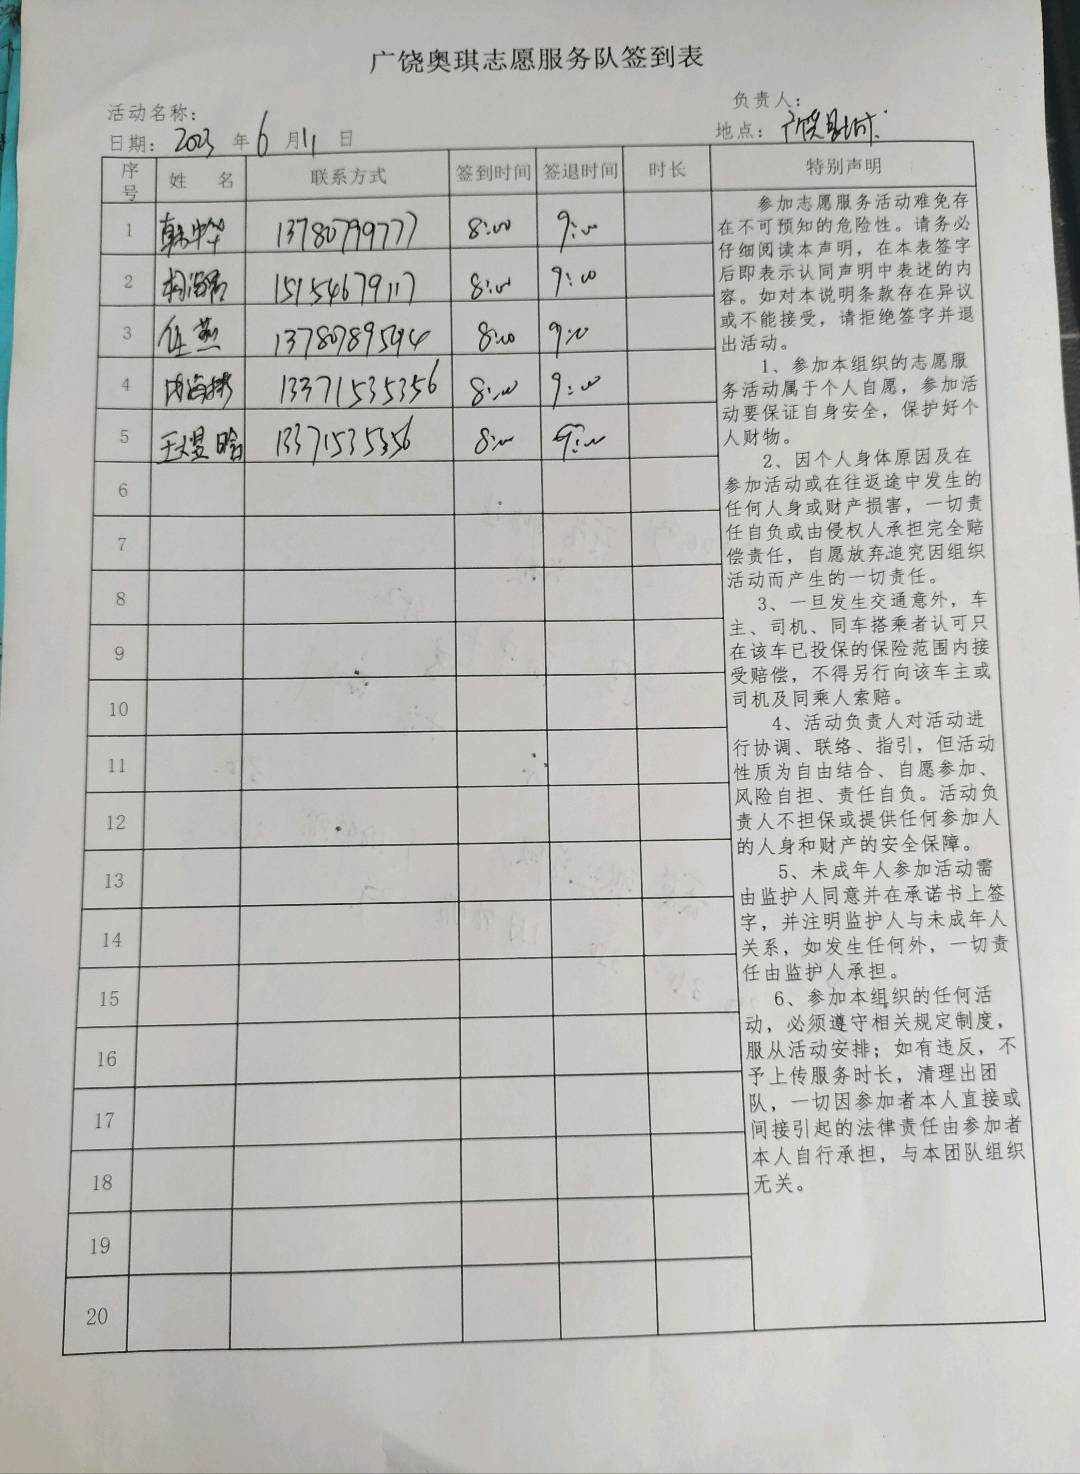 广饶奥琪志愿服务队签到表
活动名称：
负责人：
日期：2023 年 6 月 11 日
地点：广饶县城
序号 姓 名 联系方式 签到时间 签退时间 时长 特别声明
1 韩中华 13780799777 8:00 9:00
2 15154679117 8:00 9:00
3 任燕 13780789594 8:00 9:00
4 13371535356 8:00 9:00
5 王煜晗 13371535356 8:00 9:00
6
7
8
9
10
11
12
13
14
15
16
17
18
19
20
参加志愿服务活动难免存
在不可预知的危险性。请务必
仔细阅读本声明，在本表签字
后即表示认同声明中表述的内
容。如对本说明条款存在异议
或不能接受，请拒绝签字并退
出活动。
1、参加本组织的志愿服
务活动属于个人自愿，参加活
动要保证自身安全，保护好个
人财物。
2、因个人身体原因及在
参加活动或在往返途中发生的
任何人身或财产损害，一切责
任自负或由侵权人承担完全赔
偿责任，自愿放弃追究因组织
活动而产生的一切责任。
3、一旦发生交通意外，车
主、司机、同车搭乘者认可只
在该车已投保的保险范围内接
受赔偿，不得另行向该车主或
司机及同乘人索赔。
4、活动负责人对活动进
行协调、联络、指引，但活动
性质为自由结合、自愿参加、
风险自担、责任自负。活动负
责人不担保或提供任何参加人
的人身和财产的安全保障。
5、未成年人参加活动需
由监护人同意并在承诺书上签
字，并注明监护人与未成年人
关系，如发生任何外，一切责
任由监护人承担。
6、参加本组织的任何活
动，必须遵守相关规定制度，
服从活动安排；如有违反，不
予上传服务时长，清理出团
队，一切因参加者本人直接或
间接引起的法律责任由参加者
本人自行承担，与本团队组织
无关。